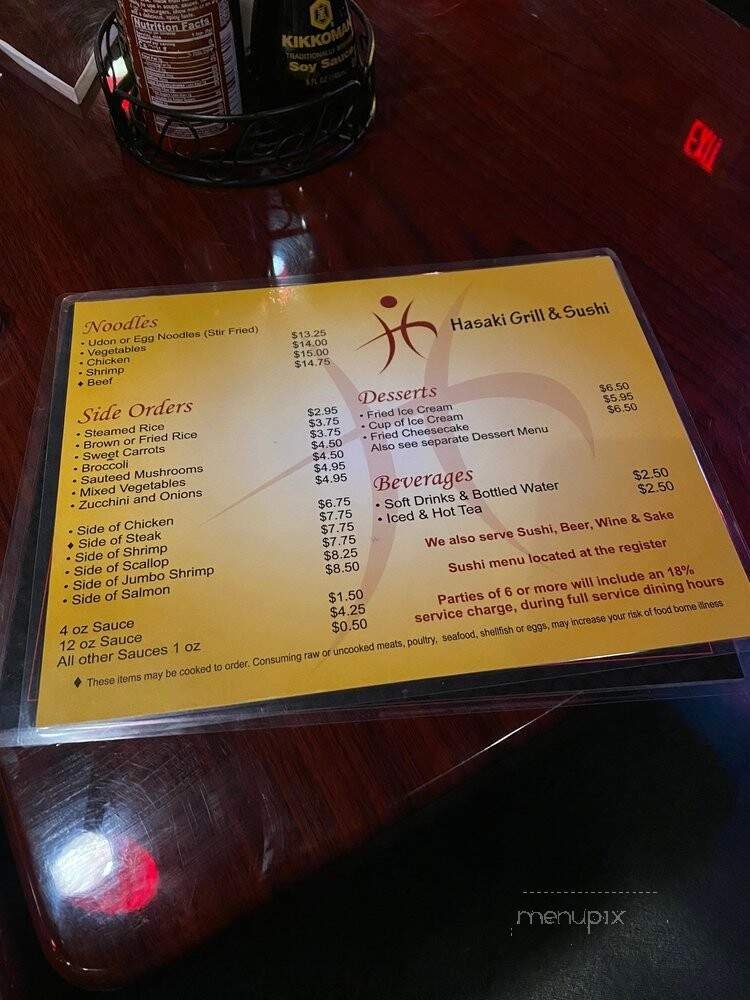 Nutrition Facts
KIKKOMAN
TRADITIONALLY
Soy Sauce
EXIT
Hasaki Grill & Sushi
Noodles
• Udon or Egg Noodles (Stir Fried)
• Vegetables $13.25
• Chicken $14.00
• Shrimp $15.00
♦ Beef $14.75
Side Orders
• Steamed Rice $2.95
• Brown or Fried Rice $3.75
• Sweet Carrots $3.75
• Broccoli $4.50
• Sauteed Mushrooms $4.50
• Mixed Vegetables $4.95
• Zucchini and Onions $4.95
• Side of Chicken $6.75
♦ Side of Steak $7.75
• Side of Shrimp $7.75
• Side of Scallop $7.75
• Side of Jumbo Shrimp $8.25
• Side of Salmon $8.50
4 oz Sauce $1.50
12 oz Sauce $4.25
All other Sauces 1 oz $0.50
Desserts
• Fried Ice Cream $6.50
• Cup of Ice Cream $5.95
• Fried Cheesecake $6.50
Also see separate Dessert Menu
Beverages
• Soft Drinks & Bottled Water $2.50
• Iced & Hot Tea $2.50
We also serve Sushi, Beer, Wine & Sake
Sushi menu located at the register
Parties of 6 or more will include an 18%
service charge, during full service dining hours
♦ These items may be cooked to order. Consuming raw or uncooked meats, poultry, seafood, shellfish or eggs, may increase your risk of food borne illness
menupix